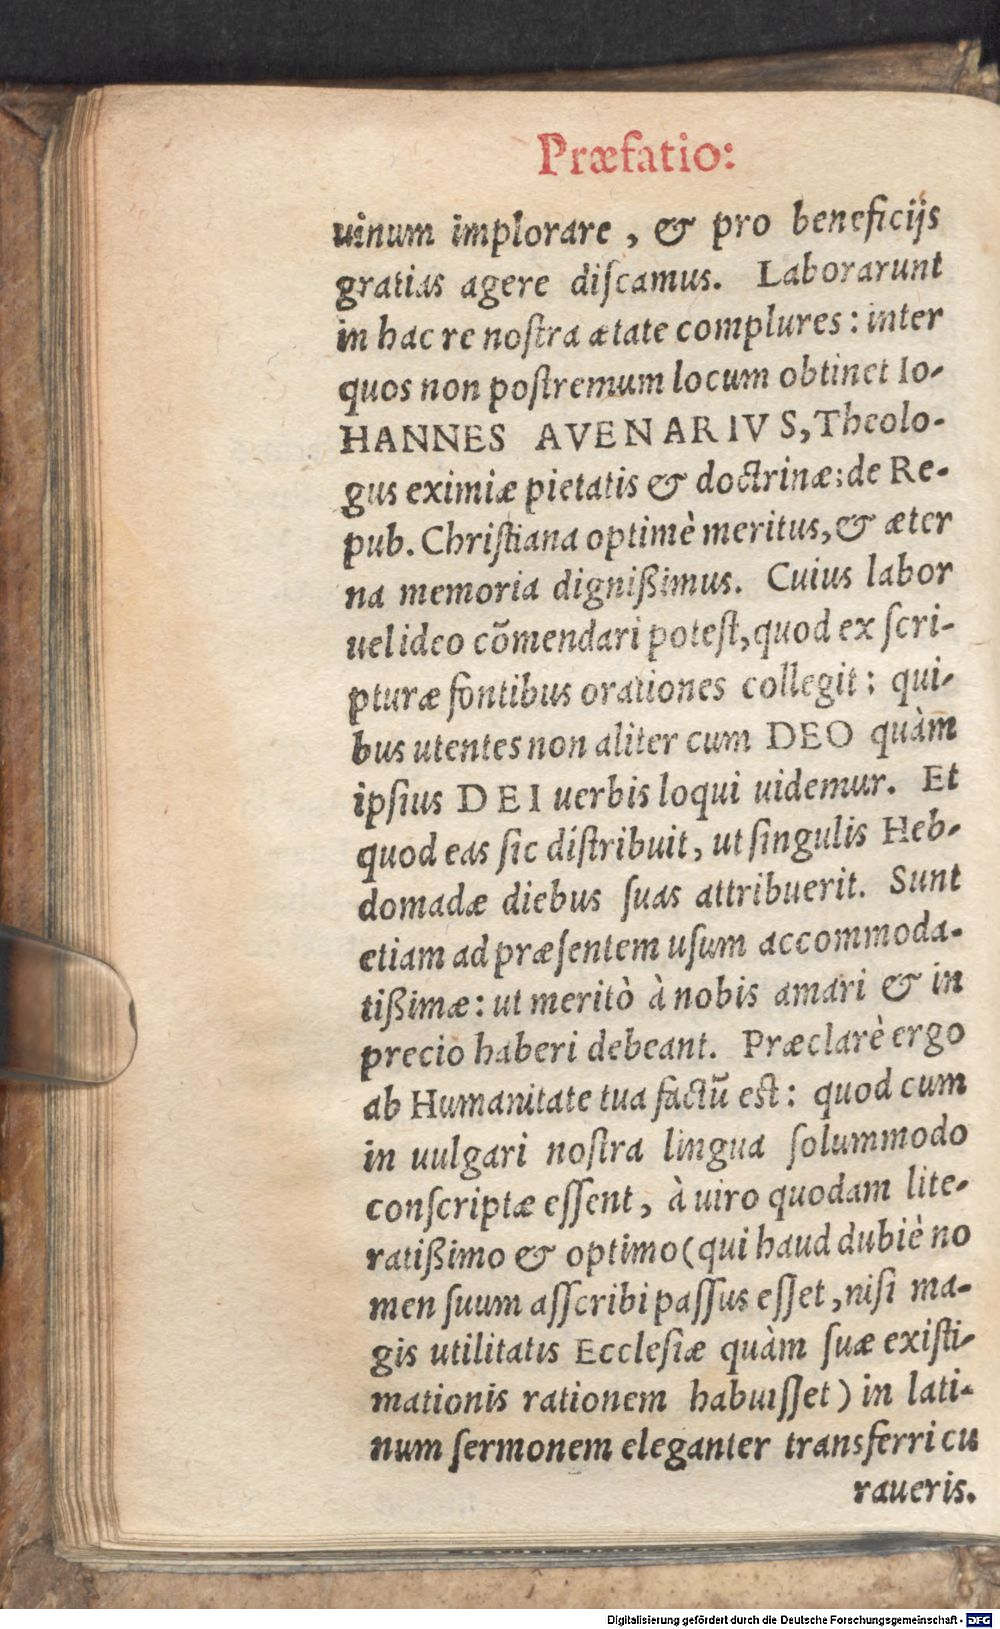 Præfatio:
uinum implorare, & pro beneficijs
gratias agere diſcamus. Laborarunt
in hac re noſtra ætate complures: inter
quos non poſtremum locum obtinet Io-
HANNES AVENARIVS, Theolo-
gus eximiæ pietatis & doctrinæ: de Re-
pub. Chriſtiana optimè meritus, & æter
na memoria dignißimus. Cuius labor
uel ideo cõmendari poteſt, quod ex ſcri-
pturæ fontibus orationes collegit: qui-
bus utentes non aliter cum DEO quàm
ipſius DEI uerbis loqui uidemur. Et
quod eas ſic diſtribuit, ut ſingulis Heb-
domadæ diebus ſuas attribuerit. Sunt
etiam ad præſentem uſum accommoda-
tißimæ: ut meritò à nobis amari & in
precio haberi debeant. Præclarè ergo
ab Humanitate tua factũ est: quod cum
in uulgari noſtra lingua ſolummodo
conſcriptæ eſſent, à uiro quodam lite-
ratißimo & optimo (qui haud dubiè no
men ſuum aſſcribi paſſus eſſet, niſi ma-
gis utilitatis Eccleſiæ quàm ſuæ exiſti-
mationis rationem habuiſſet) in lati-
num ſermonem eleganter transferri cu
raueris.
Digitalisierung gefördert durch die Deutsche Forschungsgemeinschaft - DFG